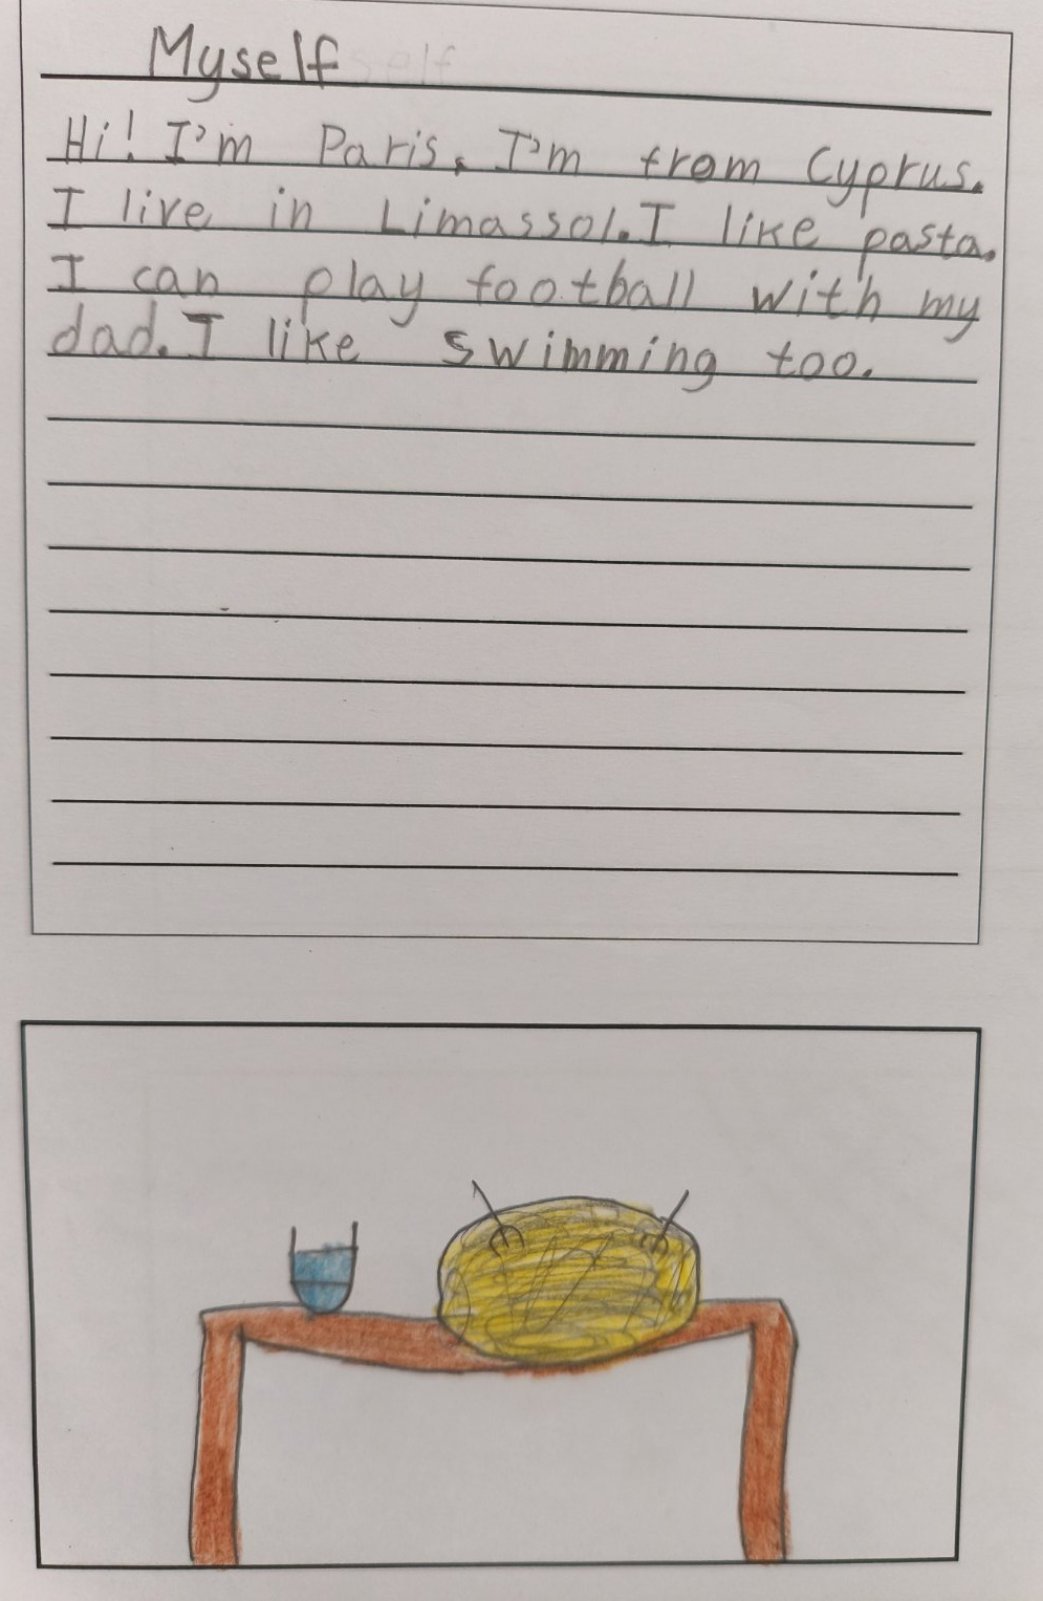 Myself
Hi! I'm Paris. I'm from Cyprus.
I live in Limassol. I like pasta.
I can play football with my
dad. I like swimming too.